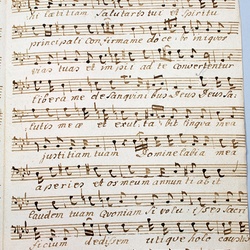 mi lætitiam Salutaris tui et Spiritu
principali confirma me docebo iniquos
vias tuas et impii ad te convertentur
libera me de Sanguinibus Deus Deus Sa
lutis meæ et exultabit lingua mea
justitiam tuam Domine labia mea
aperies et os meum annuntiabit
laudem tuam Quoniam si voluisses Sacri
ficium dedissem utique holocaustis